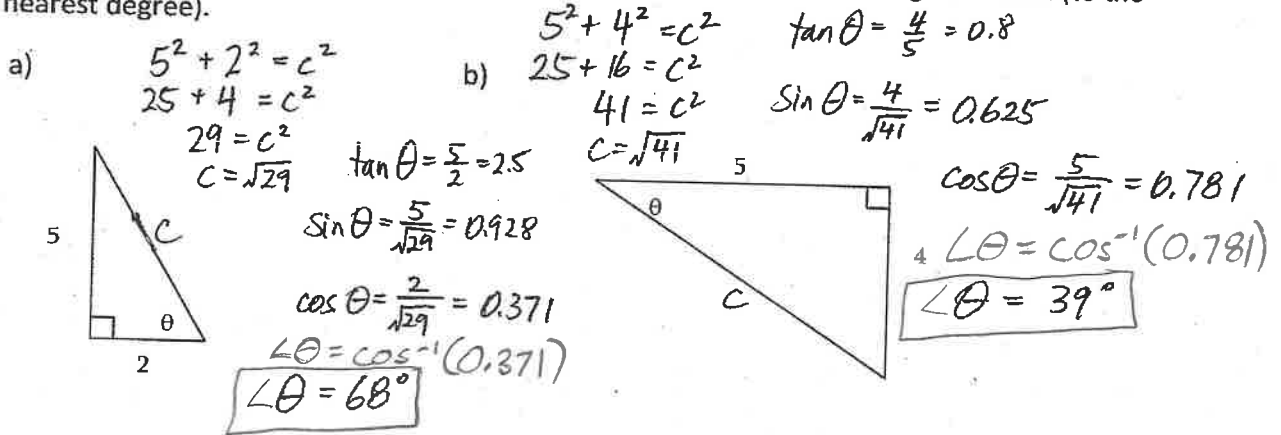 nearest degree).
a)
5² + 2² = c²
25 + 4 = c²
29 = c²
c = √29
tan θ = 5/2 = 2.5
sin θ = 5/√29 = 0.928
cos θ = 2/√29 = 0.371
∠θ = cos⁻¹(0.371)
∠θ = 68°
5
C
θ
2
b)
5² + 4² = c²
25 + 16 = c²
41 = c²
c = √41
tan θ = 4/5 = 0.8
sin θ = 4/√41 = 0.625
cos θ = 5/√41 = 0.781
∠θ = cos⁻¹(0.781)
∠θ = 39°
5
θ
4
C